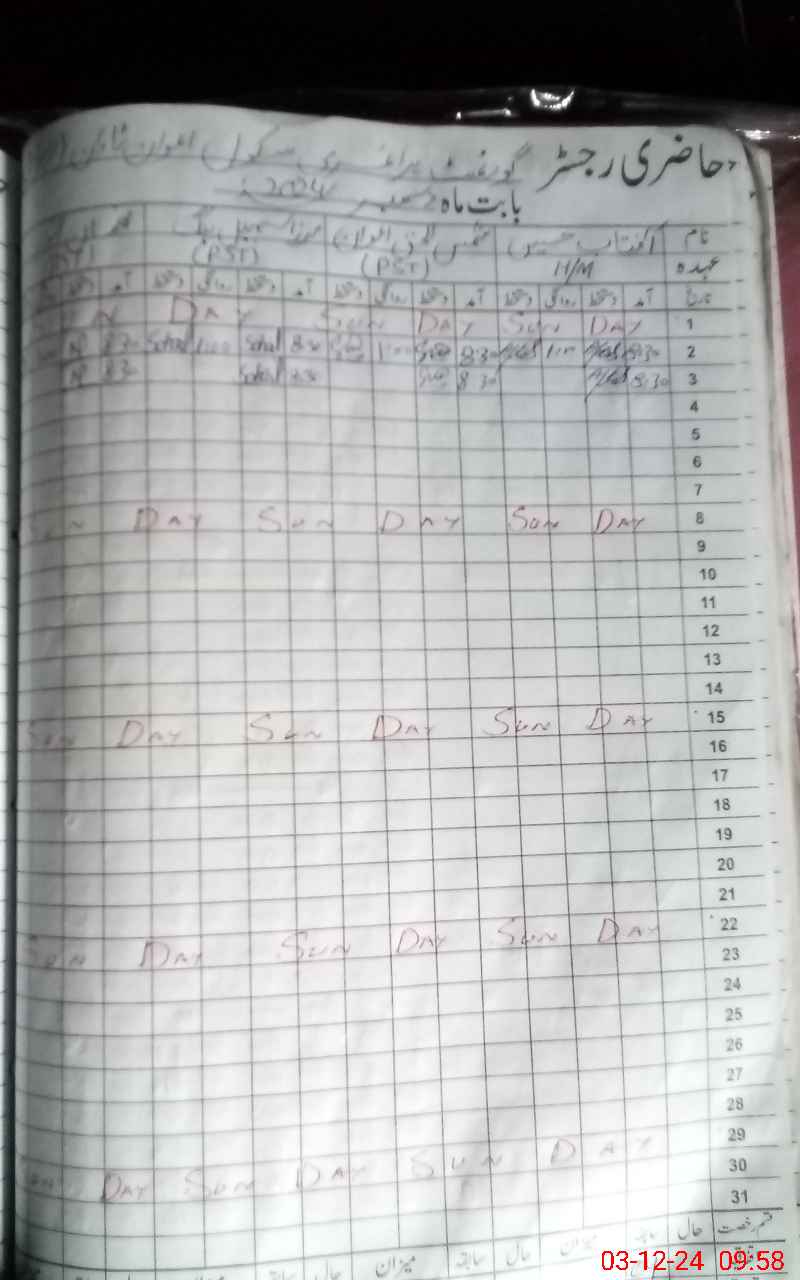 حاضری رجسٹر گورنمنٹ پرائمری سکول اعوان ٹاؤن
بابت ماہ دسمبر 2024ء
نام آفتاب حسین شمس الحق اعوان مرزا سہیل بیگ
عہدہ H/M (PST) (PST)
تاریخ آمد دستخط روانگی دستخط آمد دستخط روانگی دستخط آمد دستخط روانگی دستخط آمد دستخط
1 SUN DAY SUN DAY SUN DAY
2 8:30 1:00 8:30 1:00 Sohail 8:30 Sohail 1:00 Sohail 8:30
3 8:30 8:30 Sohail 8:30 8:30
4
5
6
7
8 SUN DAY SUN DAY SUN DAY
9
10
11
12
13
14
15 SUN DAY SUN DAY SUN DAY
16
17
18
19
20
21
22 SUN DAY SUN DAY SUN DAY
23
24
25
26
27
28
29 SUN DAY SUN DAY SUN DAY
30
31
قسم رخصت حال سابقہ میزان حال سابقہ میزان حال سابقہ
03-12-24 09:58